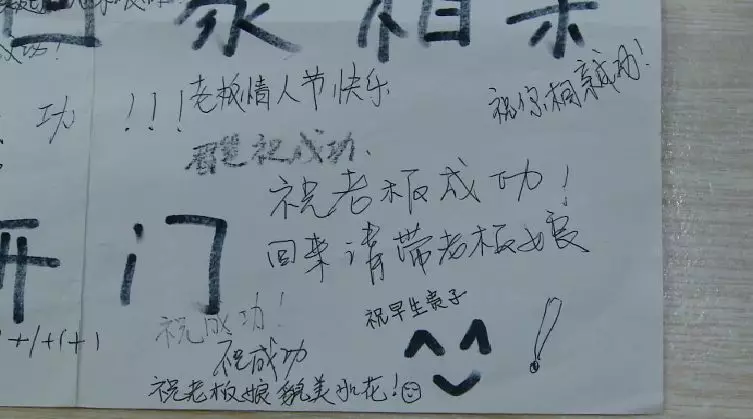 回家相亲
成功!
功!!!
老板情人节快乐
祝你相亲成功!
祝成功.
祝老板成功!
开门
回来请带老板娘
祝早生贵子
祝成功!
+1+1+1
祝成功
祝老板娘貌美如花!
!